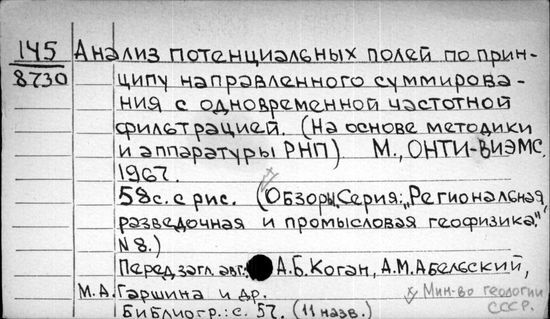 145 Анализ потенциальных полей по прин-
8730 ципу направленного суммирова-
ния с одновременной частотной
фильтрацией. (На основе методики
и аппаратуры РНП) М., ОНТИ-ВИЭМС,
1967.
58 с. с рис. (Обзоры. Серия: „Региональная
разведочная и промысловая геофизика",
N 8.)
Перед загл. авт.: А.Б. Коган, А.М. Абельский,
М.А. Гаршина и др.
Библиогр.: с. 57. (11 назв.)
☆ Мин-во геологии
СССР.